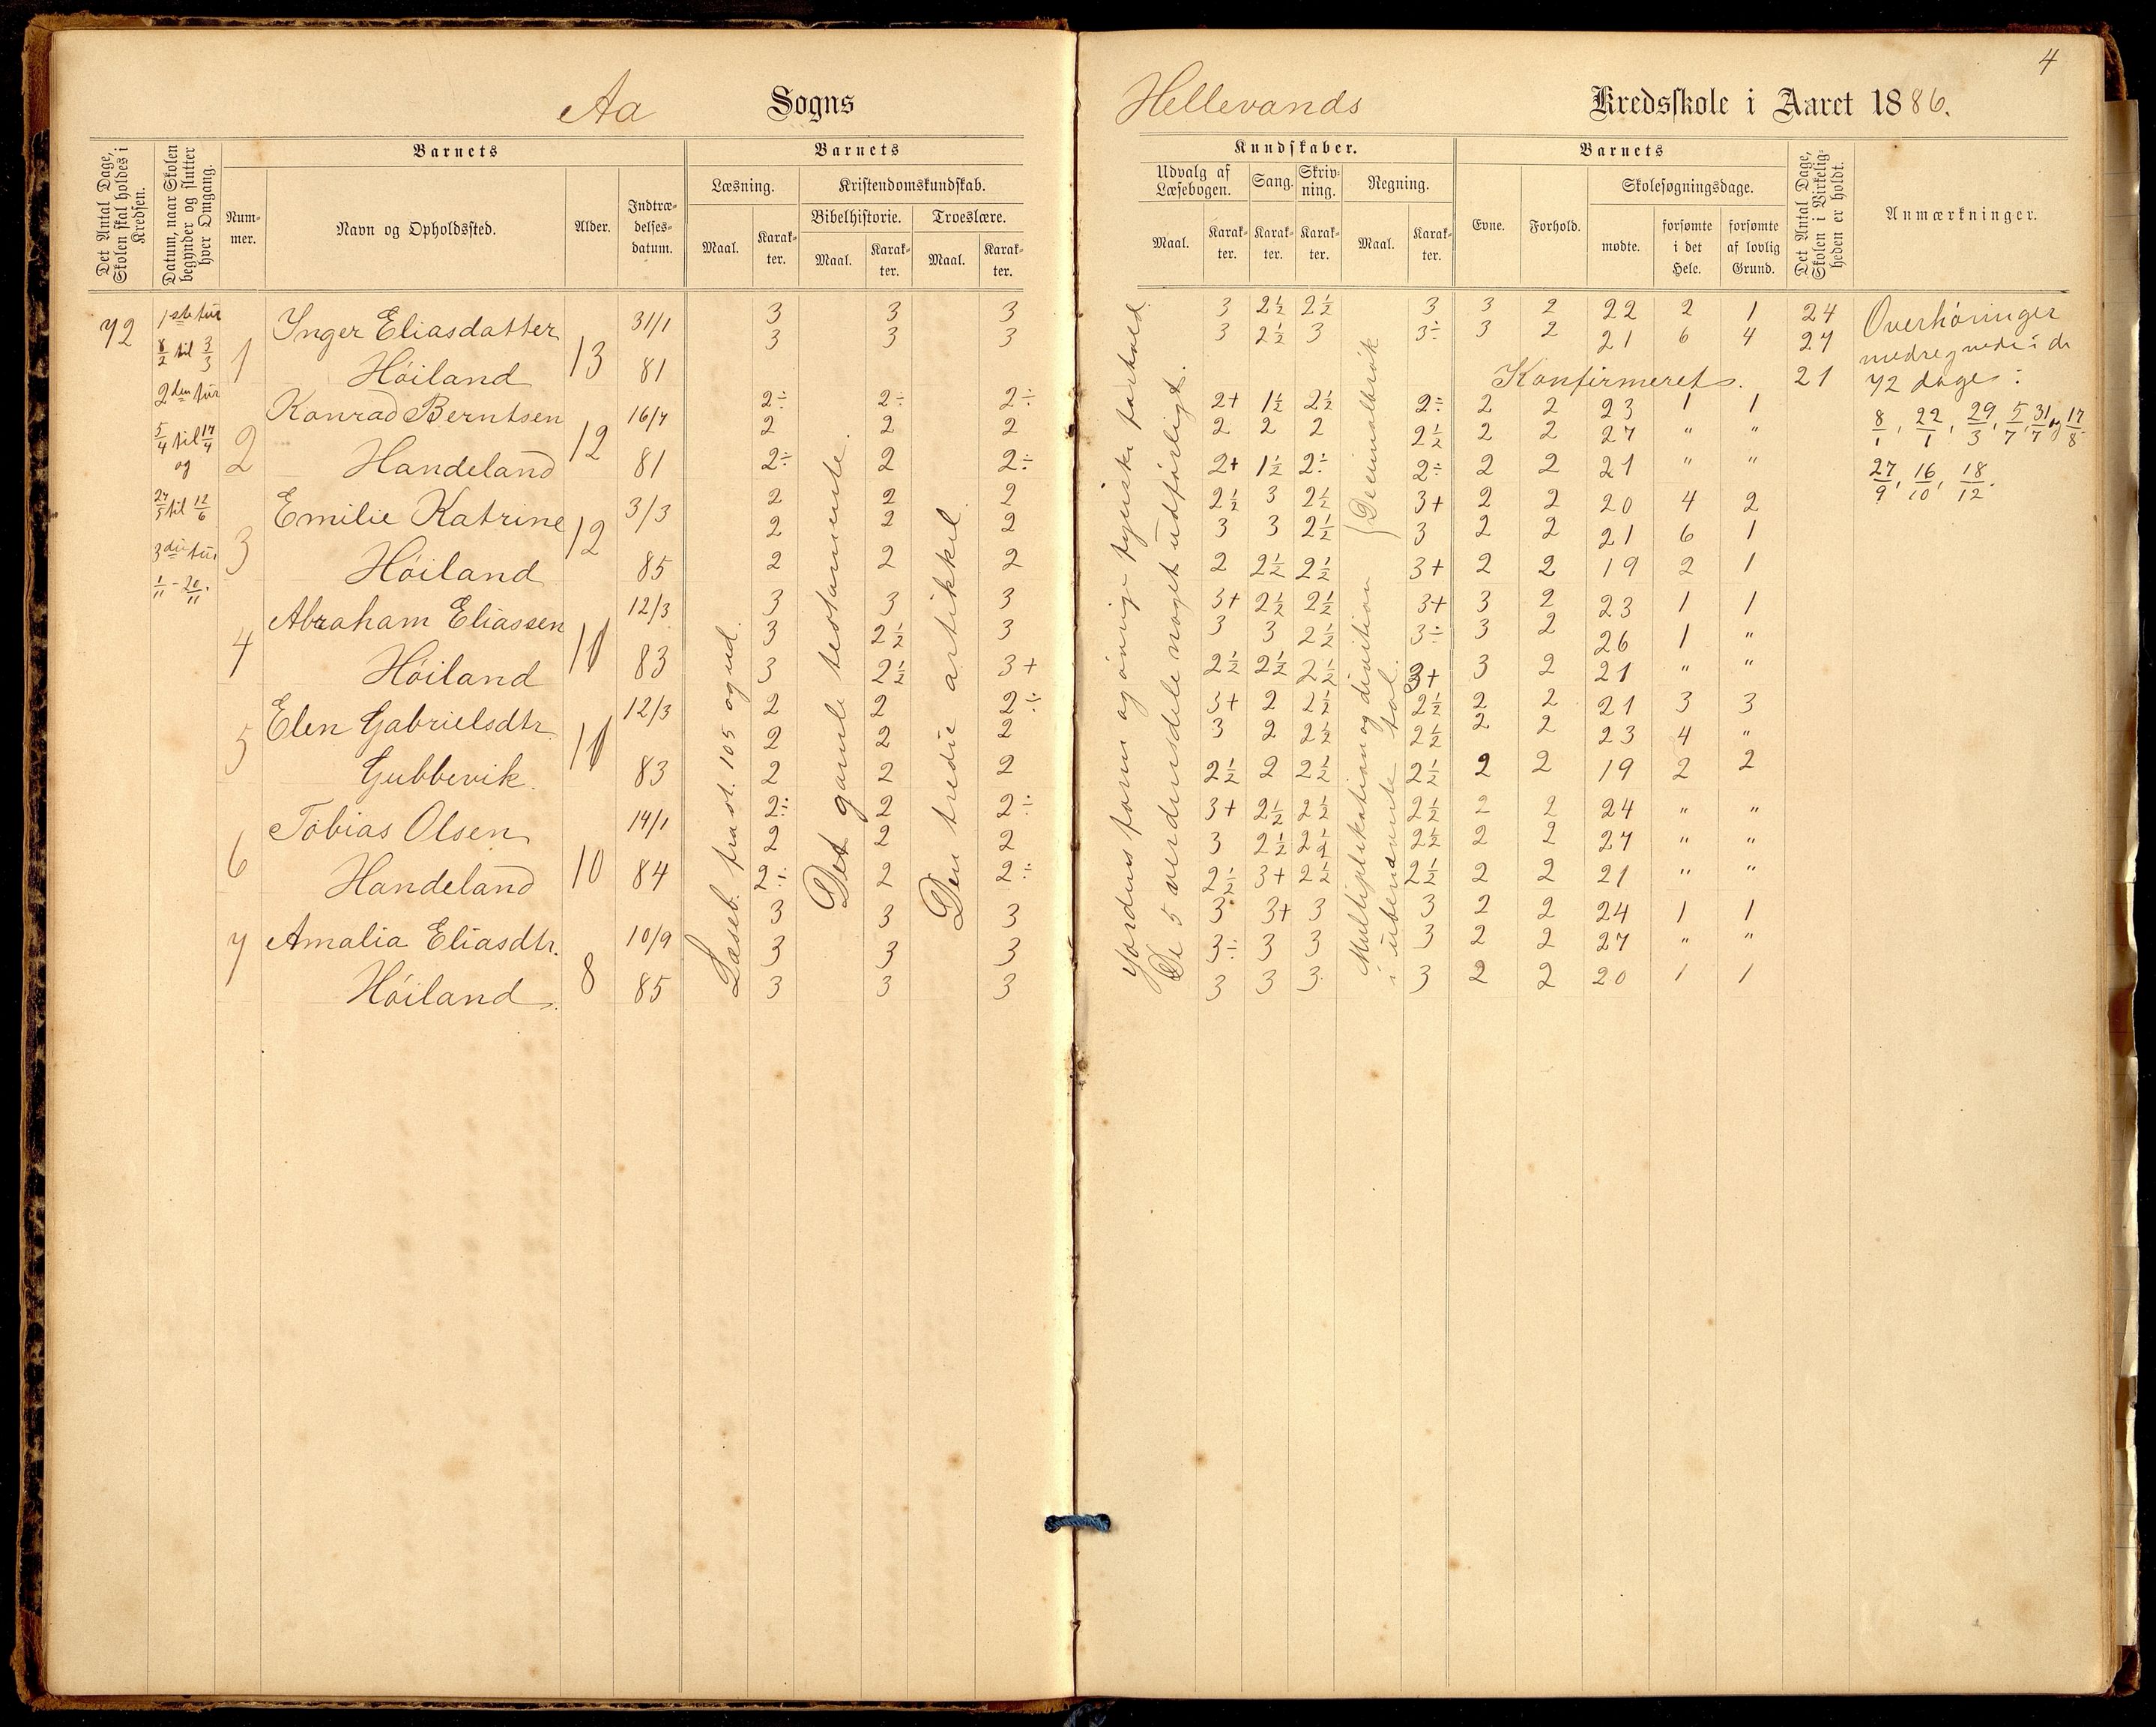 4
Aa Sogns
Hellevands Kredsskole i Aaret 1886.
Det Antal Dage, Skolen skal holdes i Kredsen.
Datum, naar Skolen begynder og slutter hver Omgang.
Barnets
Nummer.
Navn og Opholdssted.
Alder.
Indtrædelsesdatum.
Barnets
Læsning.
Maal. Karakter.
Kristendomskundskab.
Bibelhistorie. Troeslære.
Maal. Karakter. Maal. Karakter.
Kundskaber.
Udvalg af Læsebogen. Sang. Skrivning. Regning.
Maal. Karakter. Karakter. Karakter. Maal. Karakter.
Barnets
Evne. Forhold. Skolesøgningsdage.
mødte. forsømte i det Hele. forsømte af lovlig Grund.
Det Antal Dage, Skolen i Virkeligheden er holdt.
Anmærkninger.
72
1ste tur
8/2 til 3/3
2den tur
5/4 til 17/4
og
24/5 til 12/6
3die tur
1/11 - 20/11.
1 Inger Eliasdatter 13 31/1
Höiland 81
2 Konrad Berntsen 12 16/7
Handeland 81
3 Emilie Katrine 12 3/3
Höiland 85
4 Abraham Eliassen 11 12/3
Höiland 83
5 Elen Gabrielsdtr 11 12/3
Gubbevik. 83
6 Tobias Olsen 10 14/1
Handeland 84
7 Amalia Eliasdtr. 8 10/9
Höiland. 85
Læseb. fra st. 105 og ud.
Det gamle testamente.
Den tredie artikkel.
Jordens form og övrige fysiske forhold.
De 5 verdensdele noget udförligt.
Decimalbrök
Multiplikation og division
i ubenævnte tal.
3 3 3
3 3 3
2÷ 2÷ 2÷
2 2 2
2÷ 2 2÷
2 2 2
2 2 2
2 2 2
3 3 3
3 2½ 3
3 2½ 3+
2 2 2÷
2 2 2
2 2 2
2÷ 2 2÷
2 2 2
2÷ 2 2÷
3 3 3
3 3 3
3 3 3
3 2½ 2½ 3 3 2 22 2 1 24
3 2½ 3 3÷ 3 2 21 6 4 27
Konfirmeret. 21
2+ 1½ 2½ 2÷ 2 2 23 1 1
2 2 2 2½ 2 2 27 " "
2+ 1½ 2÷ 2÷ 2 2 21 " "
2½ 3 2½ 3+ 2 2 20 4 2
3 3 2½ 3 2 2 21 6 1
2 2½ 2½ 3+ 2 2 19 2 1
3+ 2½ 2½ 3+ 3 2 23 1 1
3 3 2½ 3÷ 3 2 26 1 "
2½ 2½ 2½ 3+ 3 2 21 " "
3+ 2 2½ 2½ 2 2 21 3 3
3 2 2½ 2½ 2 2 23 4 "
2½ 2 2½ 2½ 2 2 19 2 2
3+ 2½ 2½ 2½ 2 2 24 " "
3 2½ 2½ 2½ 2 2 27 " "
2½ 3+ 2½ 2½ 2 2 21 " "
3 3+ 3 3 2 2 24 1 1
3÷ 3 3 3 2 2 27 " "
3 3 3 3 2 2 20 1 1
Overhöringer
medregnede i de
72 dage:
8/1, 22/1, 29/3, 5/7, 31/7 og 17/8
27/9, 16/10, 18/12.